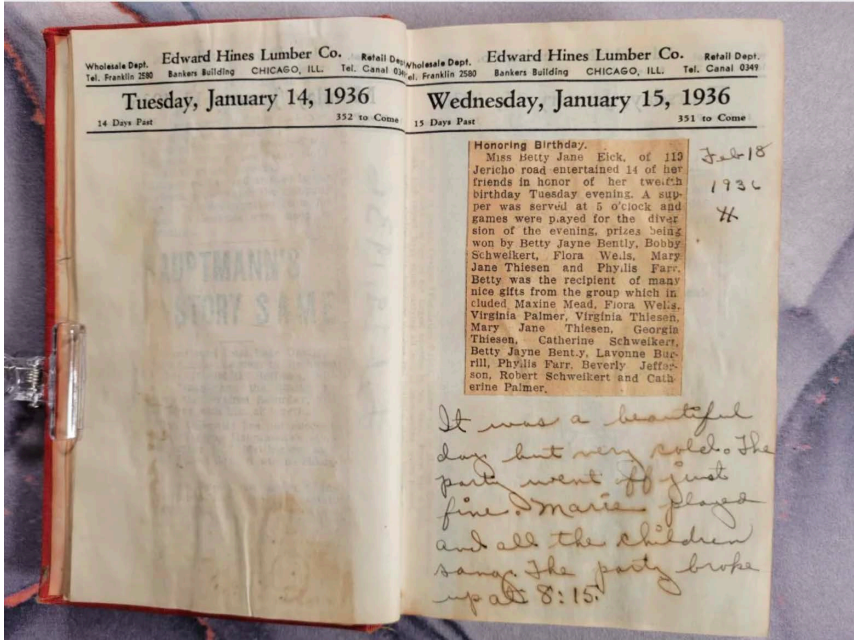 Wholesale Dept.
Tel. Franklin 2580
Edward Hines Lumber Co.
Bankers Building CHICAGO, ILL.
Retail Dept.
Tel. Canal 0349
Tuesday, January 14, 1936
14 Days Past
352 to Come
AUPTMANN'S
STORY SAME
Wholesale Dept.
Tel. Franklin 2580
Edward Hines Lumber Co.
Bankers Building CHICAGO, ILL.
Retail Dept.
Tel. Canal 0349
Wednesday, January 15, 1936
15 Days Past
351 to Come
Honoring Birthday.
Miss Betty Jane Eick, of 113
Jericho road entertained 14 of her
friends in honor of her twelfth
birthday Tuesday evening. A sup-
per was served at 5 o'clock and
games were played for the diver
sion of the evening, prizes being
won by Betty Jayne Bently, Bobby
Schweikert, Flora Wells, Mary
Jane Thiesen and Phyllis Farr.
Betty was the recipient of many
nice gifts from the group which in
cluded Maxine Mead, Flora Wells,
Virginia Palmer, Virginia Thiesen,
Mary Jane Thiesen, Georgia
Thiesen, Catherine Schweikert,
Betty Jayne Bently, Lavonne Bur-
rill, Phyllis Farr, Beverly Jeffer-
son, Robert Schweikert and Cath-
erine Palmer.
Feb 18
1936
It was a beautiful
day but very cold. The
party went off just
fine. Marie played
and all the children
sang. The party broke
up at 8:15.